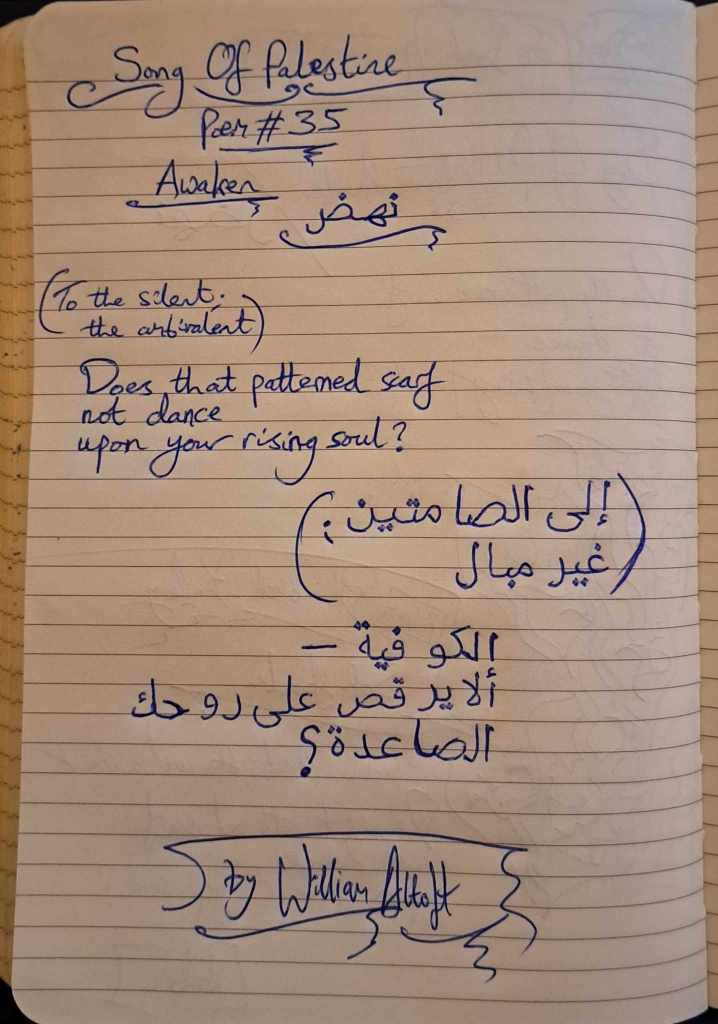 Song Of Palestine
Poem #35
Awaken
نهض
(To the silent;
the ambivalent)
Does that patterned scarf
not dance
upon your rising soul?
(إلى الصامتين;
غير مبال)
الكوفية –
ألا يرقص على روحك
الصاعدة؟
by William Altoft